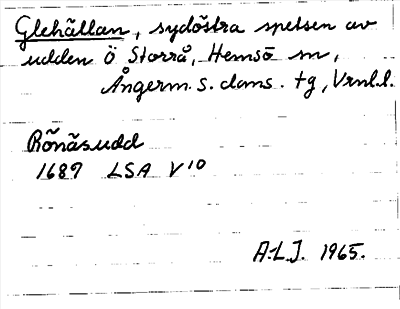 Glehällan, sydöstra spetsen av
udden Ö Storrå, Hemsö sn,
Ångerm. s. doms. tg, Vrnl.l.
Rönäsudd
1687 LSA V¹⁰
A.L.J. 1965.